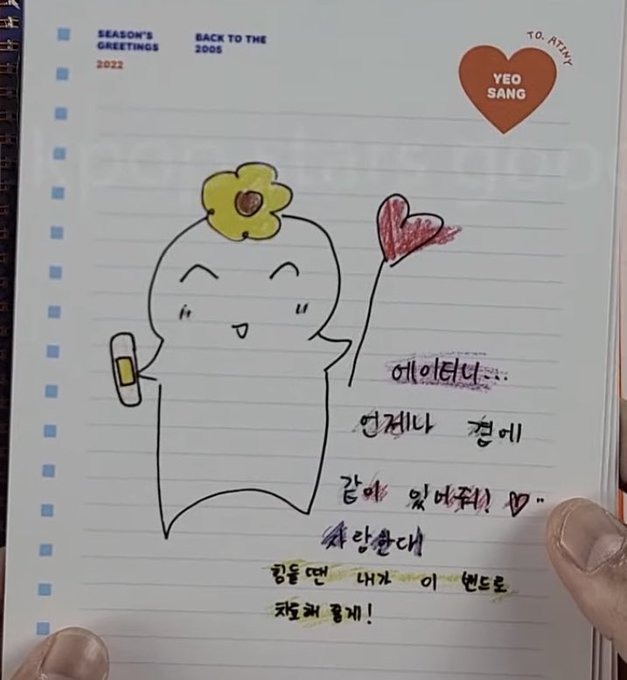 SEASON'S
GREETINGS
2022
BACK TO THE
2005
TO. ATINY
YEO
SANG
에이티니...
언제나 곁에
같이 있어줘! ♡..
사랑한다!
힘들 땐 내가 이 밴드로
치료해 줄게!